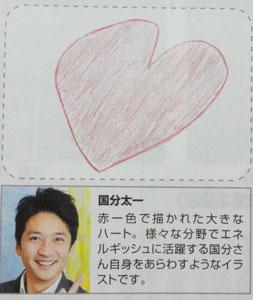 国分太一
赤一色で描かれた大きな
ハート。様々な分野でエネ
ルギッシュに活躍する国分さ
ん自身をあらわすようなイラ
ストです。